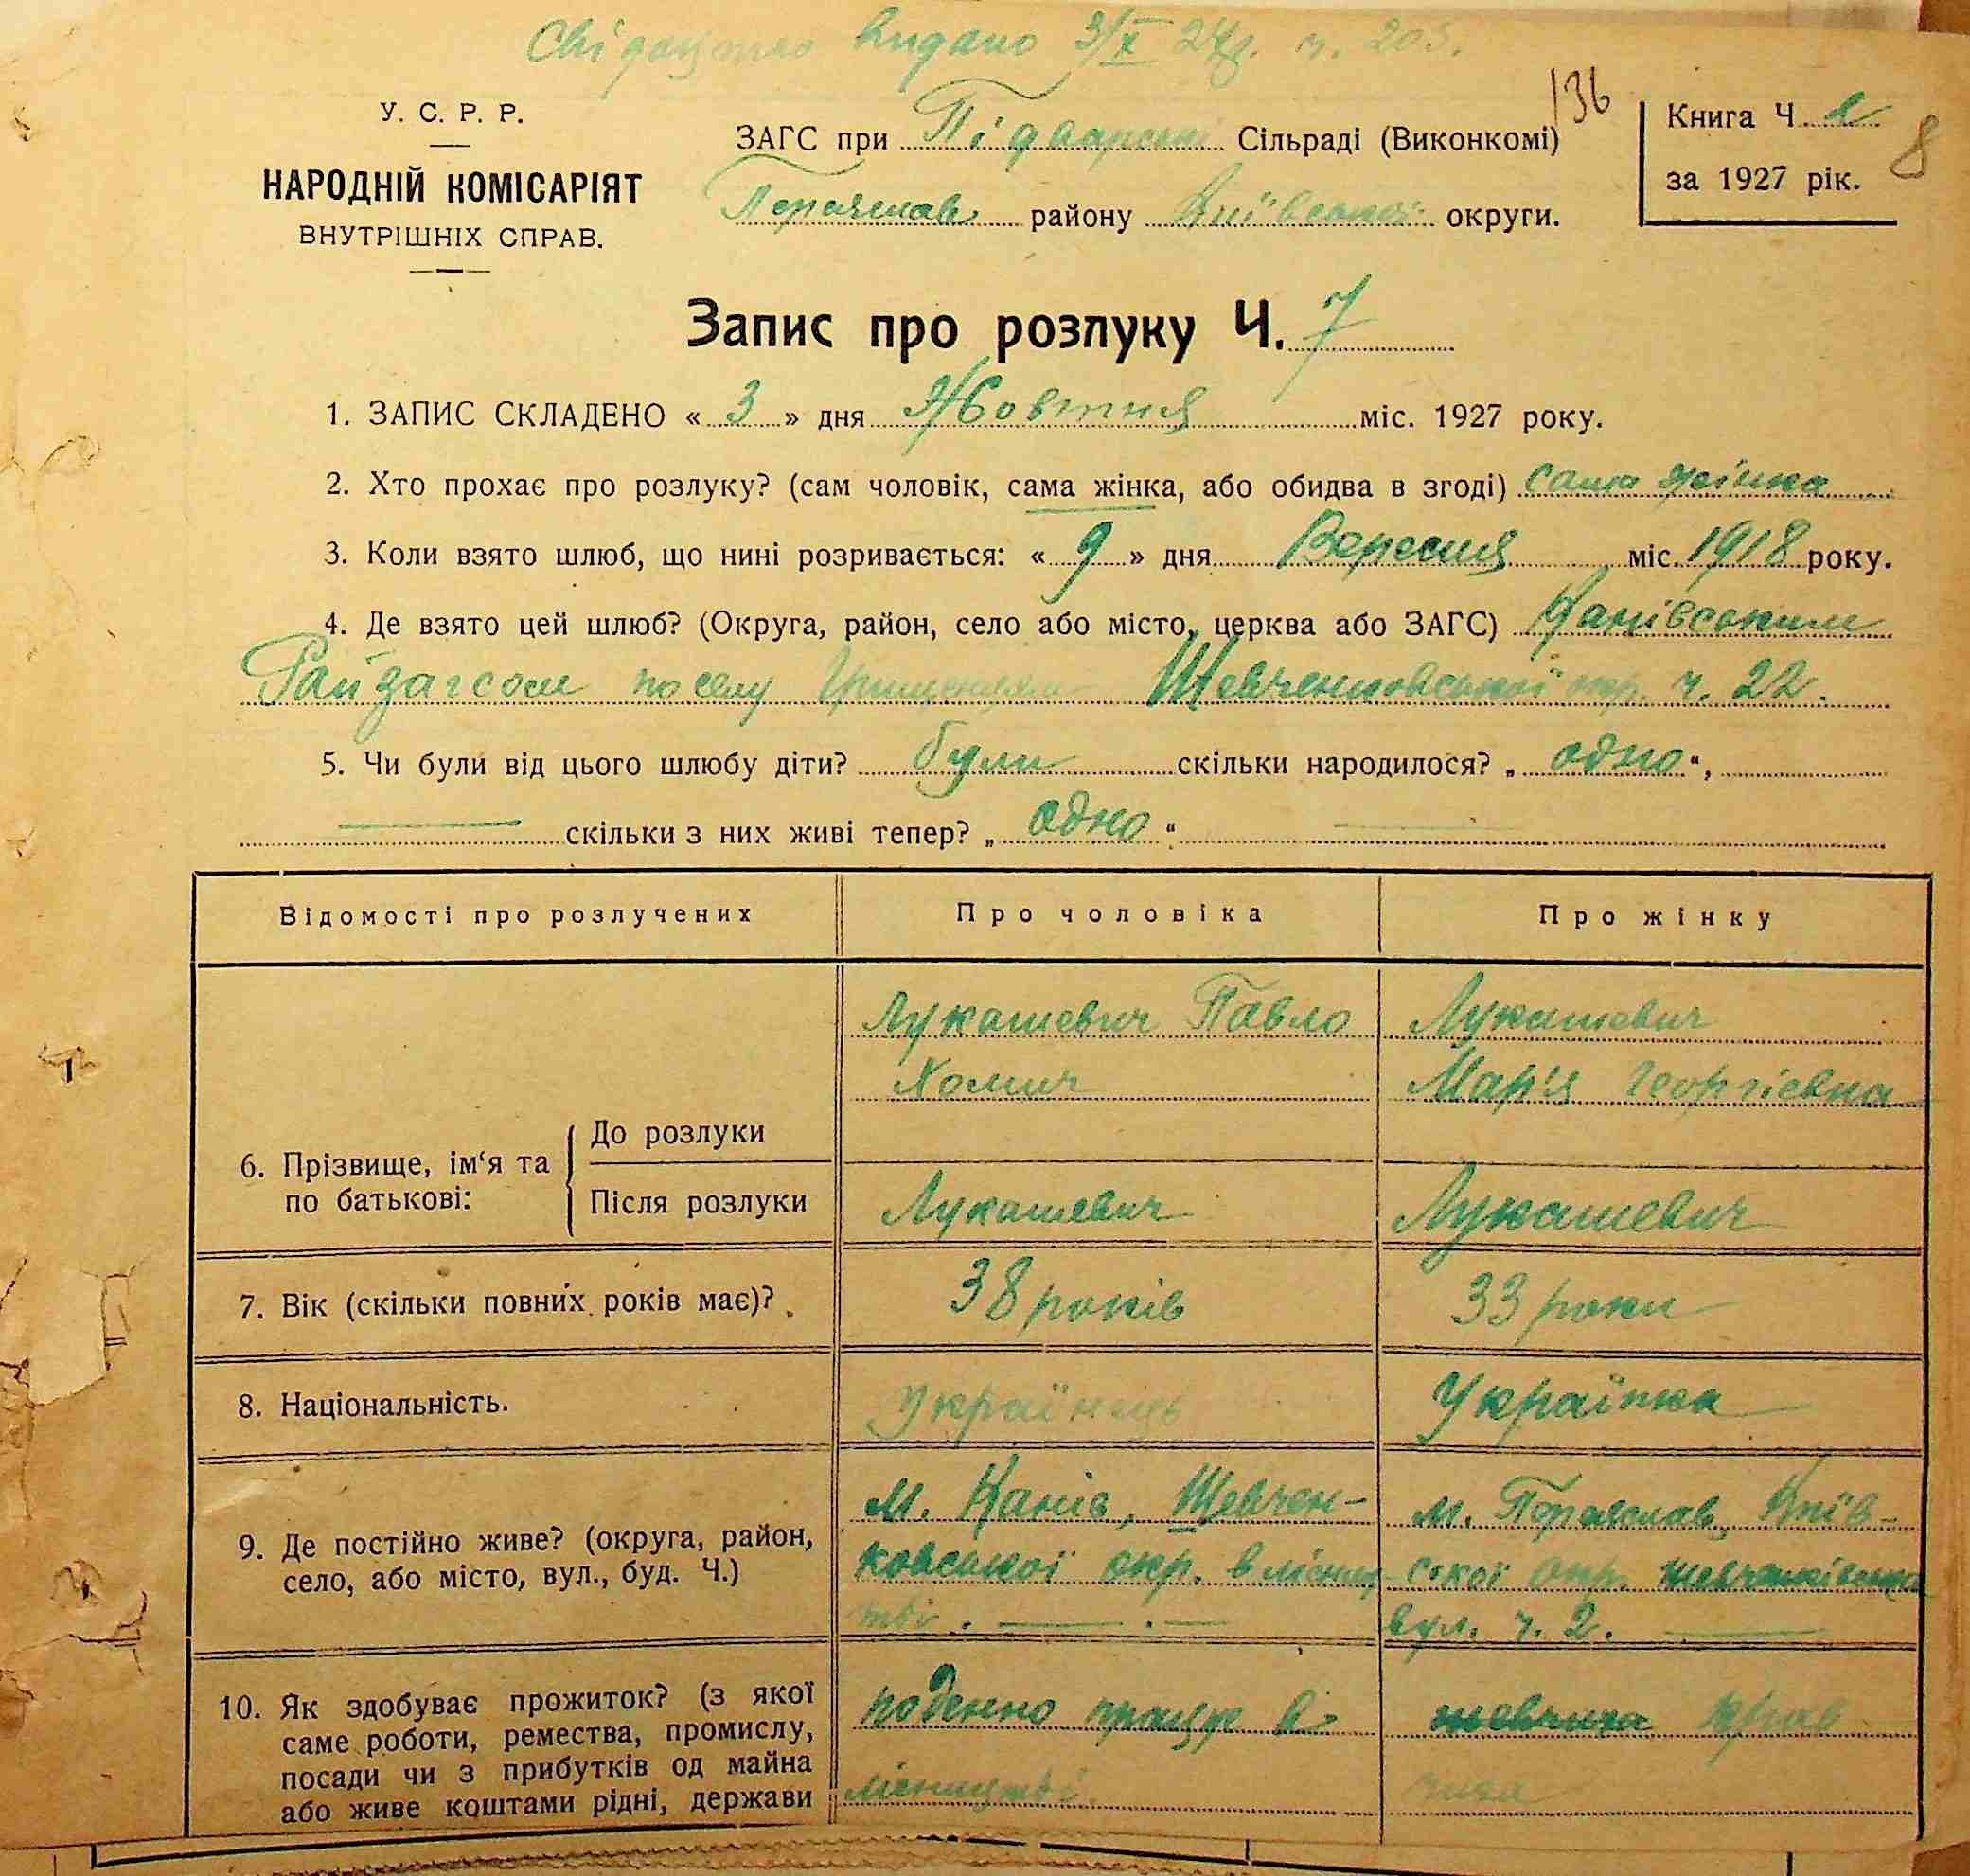 Свідоцтво видано 3/X 27р. ч. 205.
136
У. С. Р. Р.
НАРОДНІЙ КОМІСАРІЯТ
ВНУТРІШНІХ СПРАВ.
ЗАГС при Підварські Сільраді (Виконкомі)
Переяслав району Київської округи.
Книга Ч.
8
за 1927 рік.
Запис про розлуку Ч. 7
1. ЗАПИС СКЛАДЕНО « 3 » дня Жовтня міс. 1927 року.
2. Хто прохає про розлуку? (сам чоловік, сама жінка, або обидва в згоді) сама жінка
3. Коли взято шлюб, що нині розривається: « 9 » дня Вересня міс. 1918 року.
4. Де взято цей шлюб? (Округа, район, село або місто, церква або ЗАГС) Канівським
Райзагсом по селу Шевченковської окр. ч. 22.
5. Чи були від цього шлюбу діти? були скільки народилося? „ одно “,
скільки з них живі тепер? „ одно “
Відомості про розлучених
Про чоловіка
Про жінку
6. Прізвище, ім‘я та по батькові:
До розлуки
Після розлуки
Лукашевич Павло
Хомич
Лукашевич
Мар'я Георгієвна
Лукашевич
Лукашевич
7. Вік (скільки повних років має)?
38 років
33 роки
8. Національність.
Українець
Українка
9. Де постійно живе? (округа, район,
село, або місто, вул., буд. Ч.)
м. Канів, Шевчен-
ковської окр. в лісниц-
тві.
м. Переяслав, Київ-
ської окр. Шевченківська
вул. ч. 2.
10. Як здобуває прожиток? (з якої
саме роботи, ремества, промислу,
посади чи з прибутків од майна
або живе коштами рідні, держави
поденно працює в
лісництві.